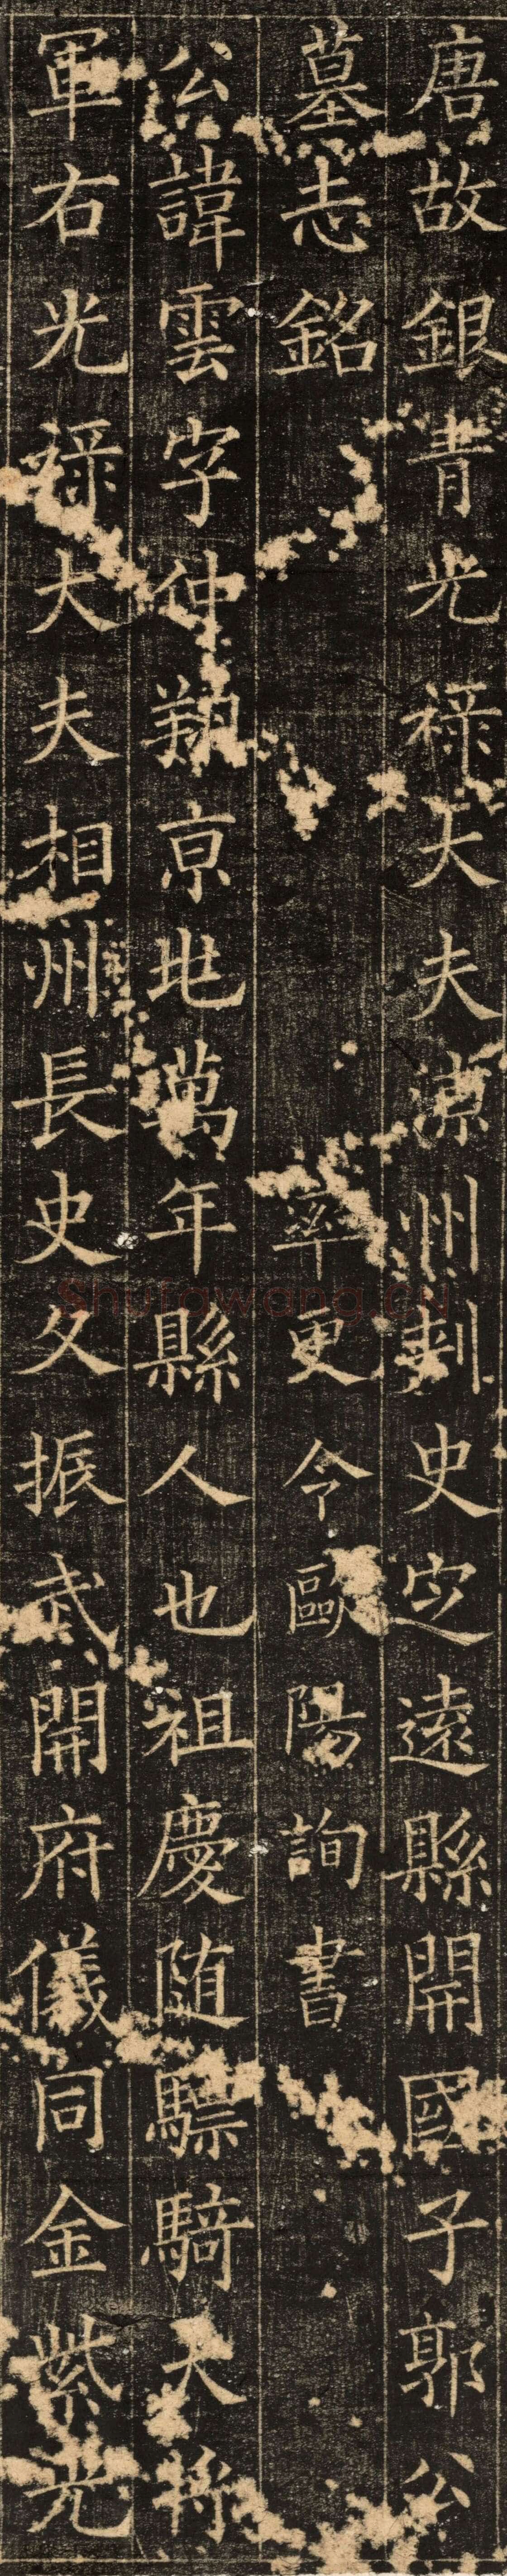 唐故銀青光祿大夫涼州刺史定遠縣開國子郭公
墓志銘 率更令歐陽詢書
公諱雲字仲翔京兆萬年縣人也祖慶随驃騎大將
軍右光祿大夫相州長史父振武開府儀同金紫光
Shufawang.CN